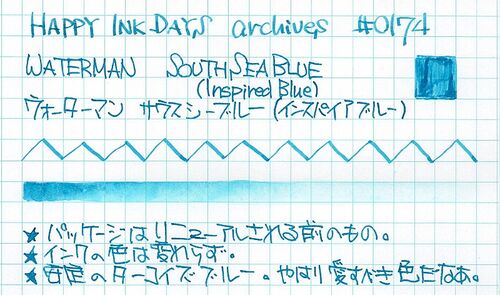 HAPPY INK DAYS archives #0174
WATERMAN SOUTH SEA BLUE
(Inspired Blue)
ウォーターマン サウスシーブルー (インスパイアブルー)
★ パッケージはリニューアルされる前のもの。
★ インクの色は変わらず。
★ 安定のターコイズブルー。やはり愛すべき色だなあ。